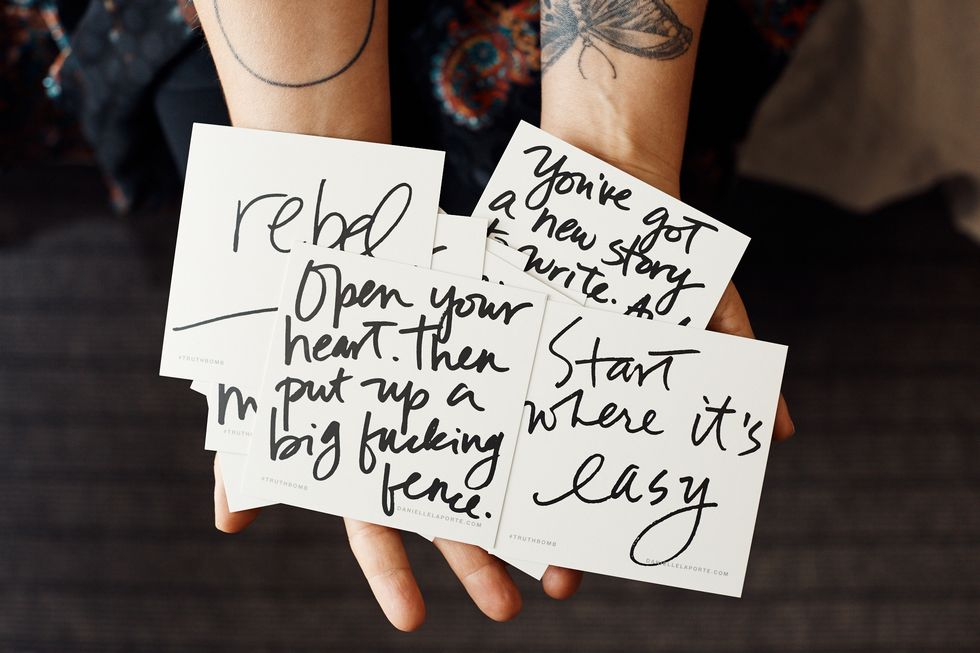 rebel
#TRUTHBOMB
You've got
a new story
to write. And
m
#TRUTH
Open your
heart. Then
put up a
big fucking
fence.
#TRUTHBOMB
DANIELLELAPORTE.COM
Start
where it's
easy
#TRUTHBOMB
DANIELLELAPORTE.COM